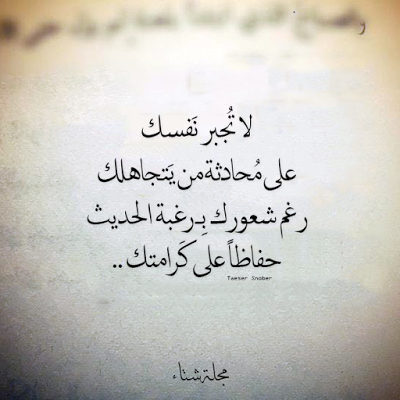 لا تُجبر نَفسك
على مُحادثة من يَتجاهلك
رغم شعورك بِـرغبة الحديث
حفاظاً على كَرامتك ..
Tweser Snober
مجلة شتاء